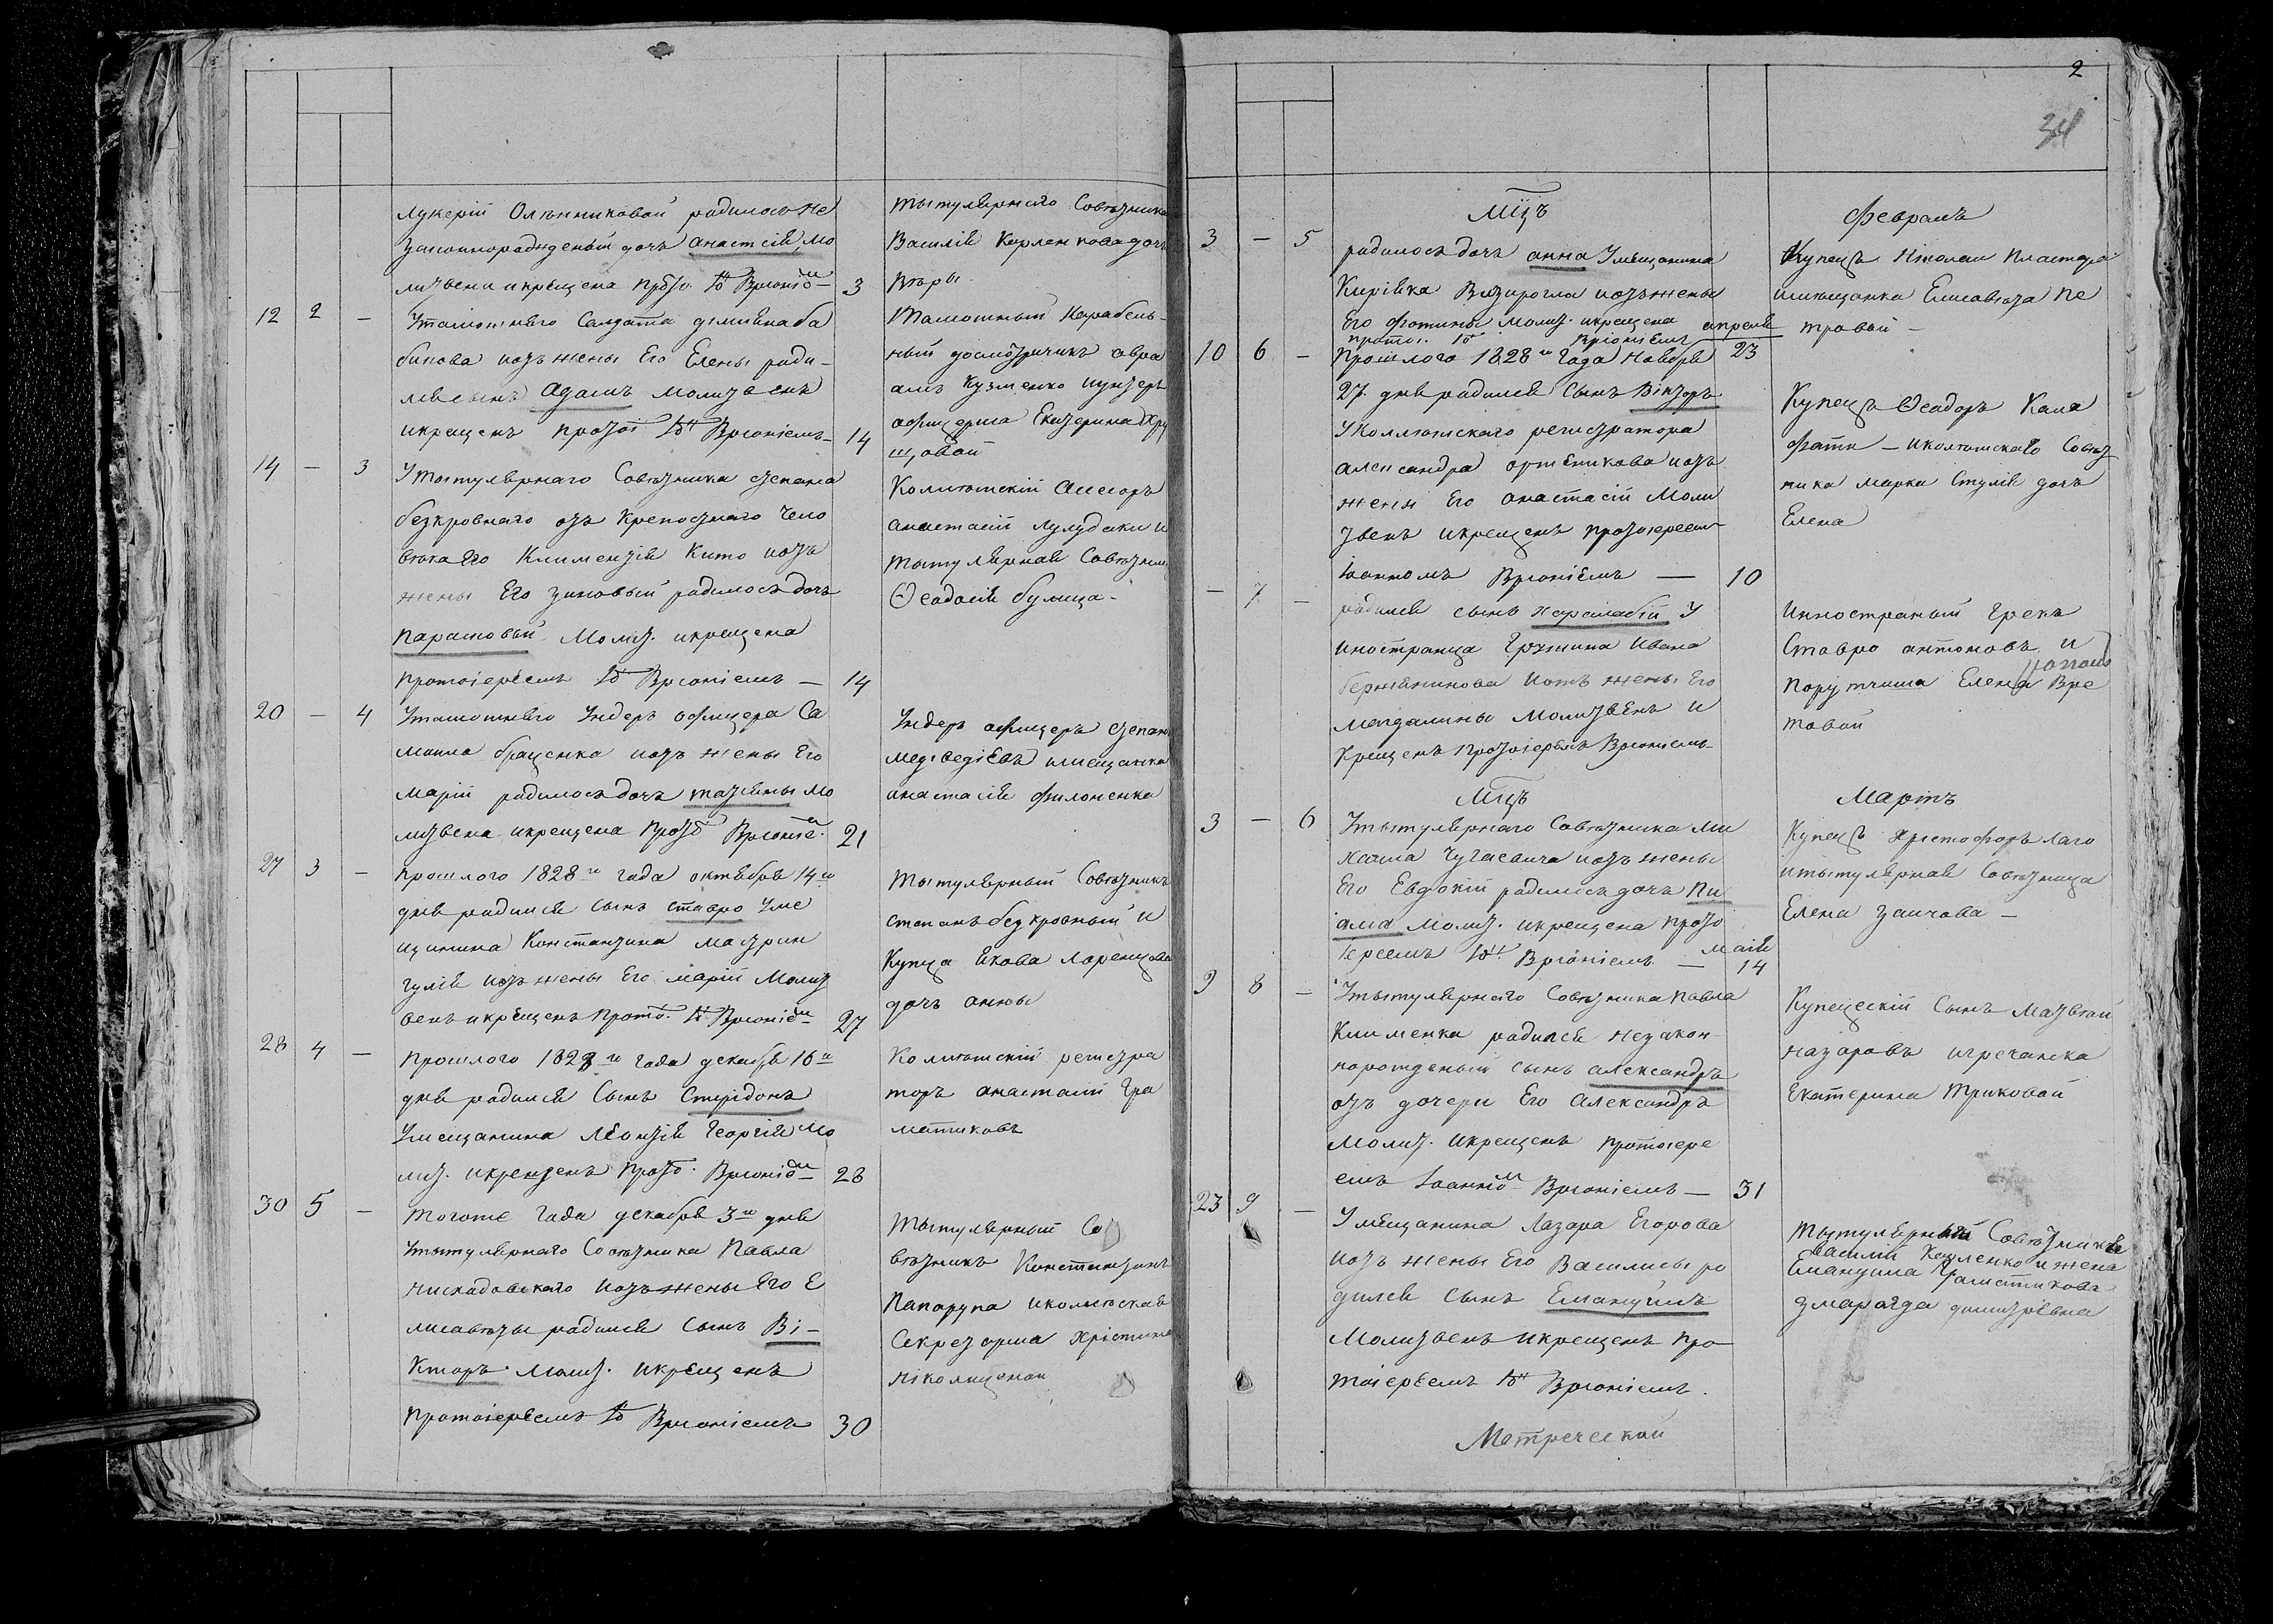 Лукерїи Олѣнниковой родилось не
законнорожденый дочь анастасїя мо
литвена икрещена прото. Іо Врионїе 3
12 2 – Утамошнего Салдата демияна ба
бикова иотъ жены Его Елены роди-
лся сынъ адамъ молитвенъ
икрещенъ протоі Іон Врионіемъ – 14
14 – 3 Утытулярнаго Совѣтника степана
безкровнаго отъ крепостнаго чело
вѣка Его Климентїя Кито иотъ
жены Его зиновыи родилось дочъ
парасковыи молит. икрещена
протоіереемъ Іо Врионіемъ – 14
20 – 4 Утамошнего Ундеръ офицера Са
моила браценка иотъ жены Его
Марїи родилось дочъ татіяны мо
литвена икрещена прото Врионіе. 21
27 3 – прошлого 1828го года октября 14го
дня родился сынъ ставро Уме
щанина Константина мастрин
гулія иотъ жены Его марїи Молит
венъ икрещенъ прото. Іо Врионіе 27
28 4 – прошлого 1828го года декабря 16го
дня родился Сынъ Спірідонъ
Умещанина Леонтїя Георгїя мо
лит. икрещенъ прото. Врионіе 28
30 5 – тогоже года декабря 3го дня
Утытулярнаго Совѣтника Павла
нискадовскаго иотъ жены Его Е
лисавѣты родился Сынъ Ві-
кторъ. Молит. икрещенъ
протоіереемъ Іо Врионіемъ 30
тытулярнаго Совѣтника
Василїя Карленкова дочь
вѣры
тамошный Карабель-
ный досмотрчикъ авра
амъ Кузменко иунтеръ
афицерша Екатерина Хру
щовой
Колижскїй асесоръ
анастасїи лулудаки и
тытулярная Совѣтни
Ѳеодосїя булица-
Ундеръ афицеръ степанъ
медведіевъ имещанка
анастасїя филоненка
тытулярный Совѣтникъ
степанъ безкровный и
купца Якова Лоренцова
дочъ анны
Колижскїй регистра
торъ анастасїи Гра
матиковъ
тытулярный Со
вѣтникъ Константинъ
Папарупа иколижская
Секретарша Христина
Николиценои
2
34
Мцъ Февраль
3 – 5 родилось дочъ анна Умещанина
Кирїяка Визирогла иотъ жены
Его Фотины молит. икрещена апреля
протоі. Іо Вріоніемъ 23
10 6 – Прошлого 1828го Года Ноября
27. дня родился Сынъ Вікторъ
Уколлижскаго регистратора
александра артеникова иотъ
жены Его анастасїи Моли
твенъ икрещенъ протоіереем
Іоанномъ Врионіемъ – 10
– 7 – родился сынъ харалабїи У
иностранца Грузина Ивана
бержанинова иотъ жены Его
магдалины молитвенъ и
крещенъ протоіереемъ Врионіемъ
Мцъ Мартъ
3 – 6 Утытулярнаго Совѣтника Ми
хаила Чугаевича иотъ жены
Его Евдокїи родилось дочъ Пи
ама молит. икрещена прото
іереемъ Іон Вріоніемъ – маія 14
9 8 – Утытулярнаго Совѣтника павла
Клименка родился незакон-
норожденый сынъ александръ
отъ дочери Его александръ
молит. икрещенъ протоіере
емъ Іоанно Врионіемъ – 31
23 9 – Умещанина Лазара Егорова
иотъ жены Его Василисы ро
дился сынъ Емануилъ
Молитвенъ икрещенъ про
тоіереемъ Іон Врионіемъ.
Метреческой
Купецъ Николаи Пластара
имещанка Елисавѣта Пе
тровой –
Купецъ Ѳеодоръ Кала
фати – иколижскаго Совѣт
ника марка Стулія дочъ
Елена
Инностраный Грекъ
Ставро антоновъ и
Порутчиша Елена Вре
товой
Купецъ христофоръ Лаго
итытулярная Совѣтница
Елена заичова –
Купецескїй Сынъ Матвѣй
назаровъ игречанка
Екатерина Триковой
Тытулярный Совѣтникъ
Василїи Карленко ижена
Емануила Граматиковъ
змарагда димитрѣвна